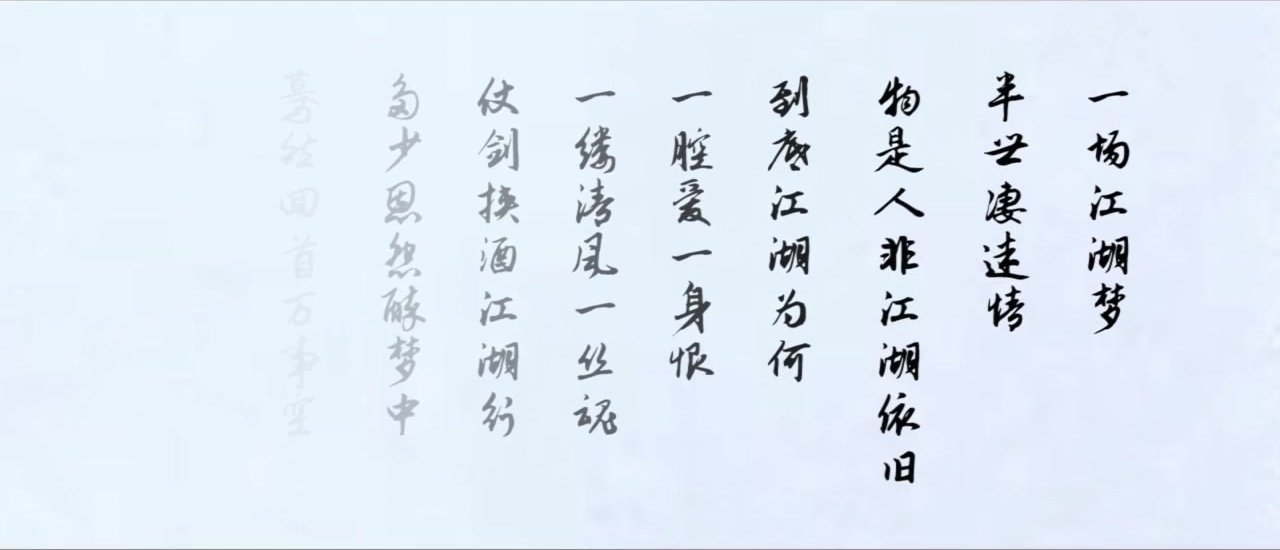 一场江湖梦
半世凄迷情
物是人非江湖依旧
到底江湖为何
一腔爱一身恨
一缕清风一丝魂
仗剑挟酒江湖行
多少恩怨醉梦中
蓦然回首万事空